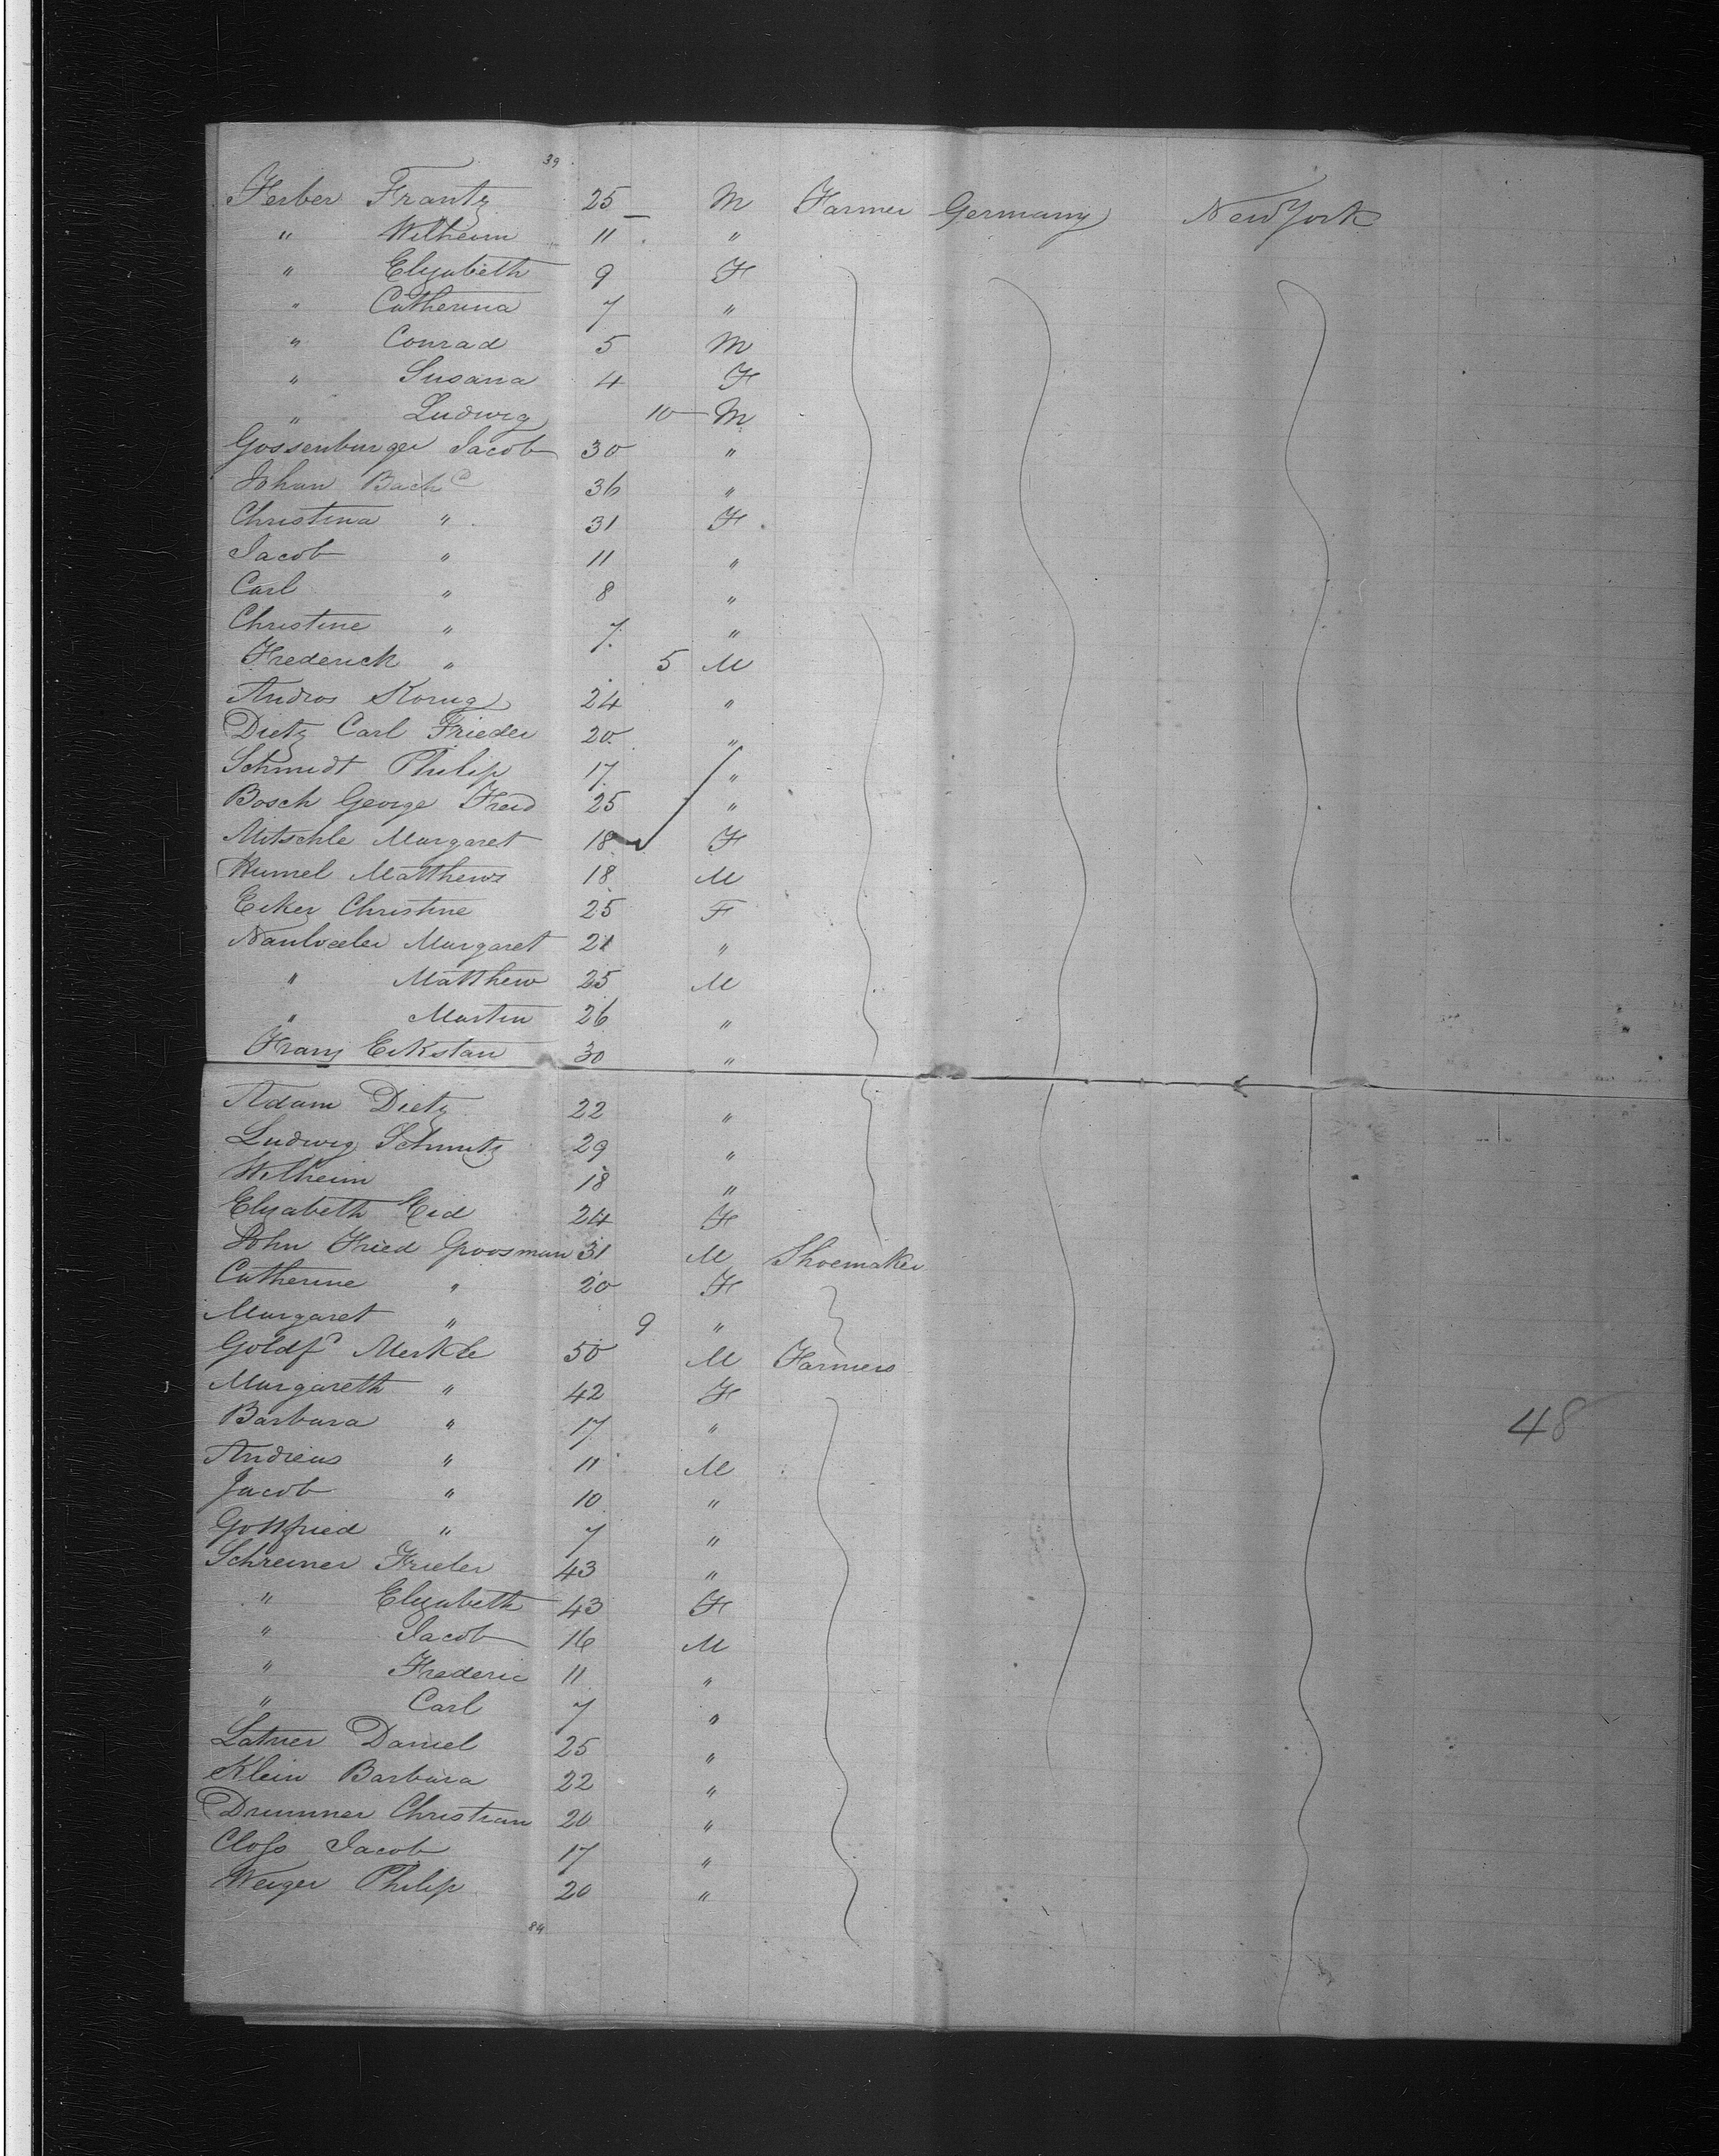 39
Ferber Frantz 25 — M Farmer Germany New York
" Wilheim 11 "
" Elyzabeth 9 F
" Catherina 7 "
" Conrad 5 M
" Susana 4 F
" Ludwig 10 — M
Gossenburger Jacob 30 "
Johan Bach 36 "
Christina " 31 F
Jacob " 11 "
Carl " 8 "
Christine " 7 "
Frederick " 5 M
Andros Konug 24 "
Dietz Carl Frieder 20 "
Schmidt Philip 17 "
Bosch George Fried 25 "
Mitschle Margaret 18 F
Humel Matthews 18 M
Eeker Christine 25 F
Margaret 21 "
" Matthew 25 M
" Martin 26 "
Franz Eckstan 30 "
Adam Dietz 22 "
Ludwig Schmitz 29 "
Wilheim 18 "
Elyzabeth Eid 24 F
John Fried Groosman 31 M Shoemaker
Catherine " 20 F
Margaret " 9 "
Goldfd Merkle 50 M Farmers
Margareth " 42 F
Barbara " 17 "
Andreus " 11 M
48
Jacob " 10 "
Gottfried " 7 "
Schreiner Frieder 43 "
" Elyzabeth 43 F
" Jacob 16 M
" Frederic 11 "
" Carl 7 "
Latner Daniel 25 "
Klein Barbara 22 "
Drummer Christian 20 "
Closs Jacob 17 "
Weiger Philip 20 "
84